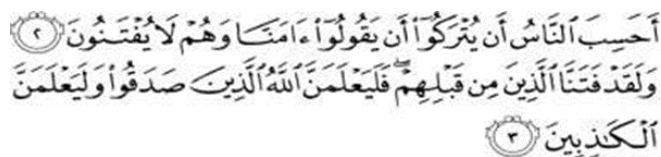 أَحَسِبَ ٱلنَّاسُ أَن يُتْرَكُوٓا۟ أَن يَقُولُوٓا۟ ءَامَنَّا وَهُمْ لَا يُفْتَنُونَ ۝٢
وَلَقَدْ فَتَنَّا ٱلَّذِينَ مِن قَبْلِهِمْ ۖ فَلَيَعْلَمَنَّ ٱللَّهُ ٱلَّذِينَ صَدَقُوا۟ وَلَيَعْلَمَنَّ
ٱلْكَـٰذِبِينَ ۝٣